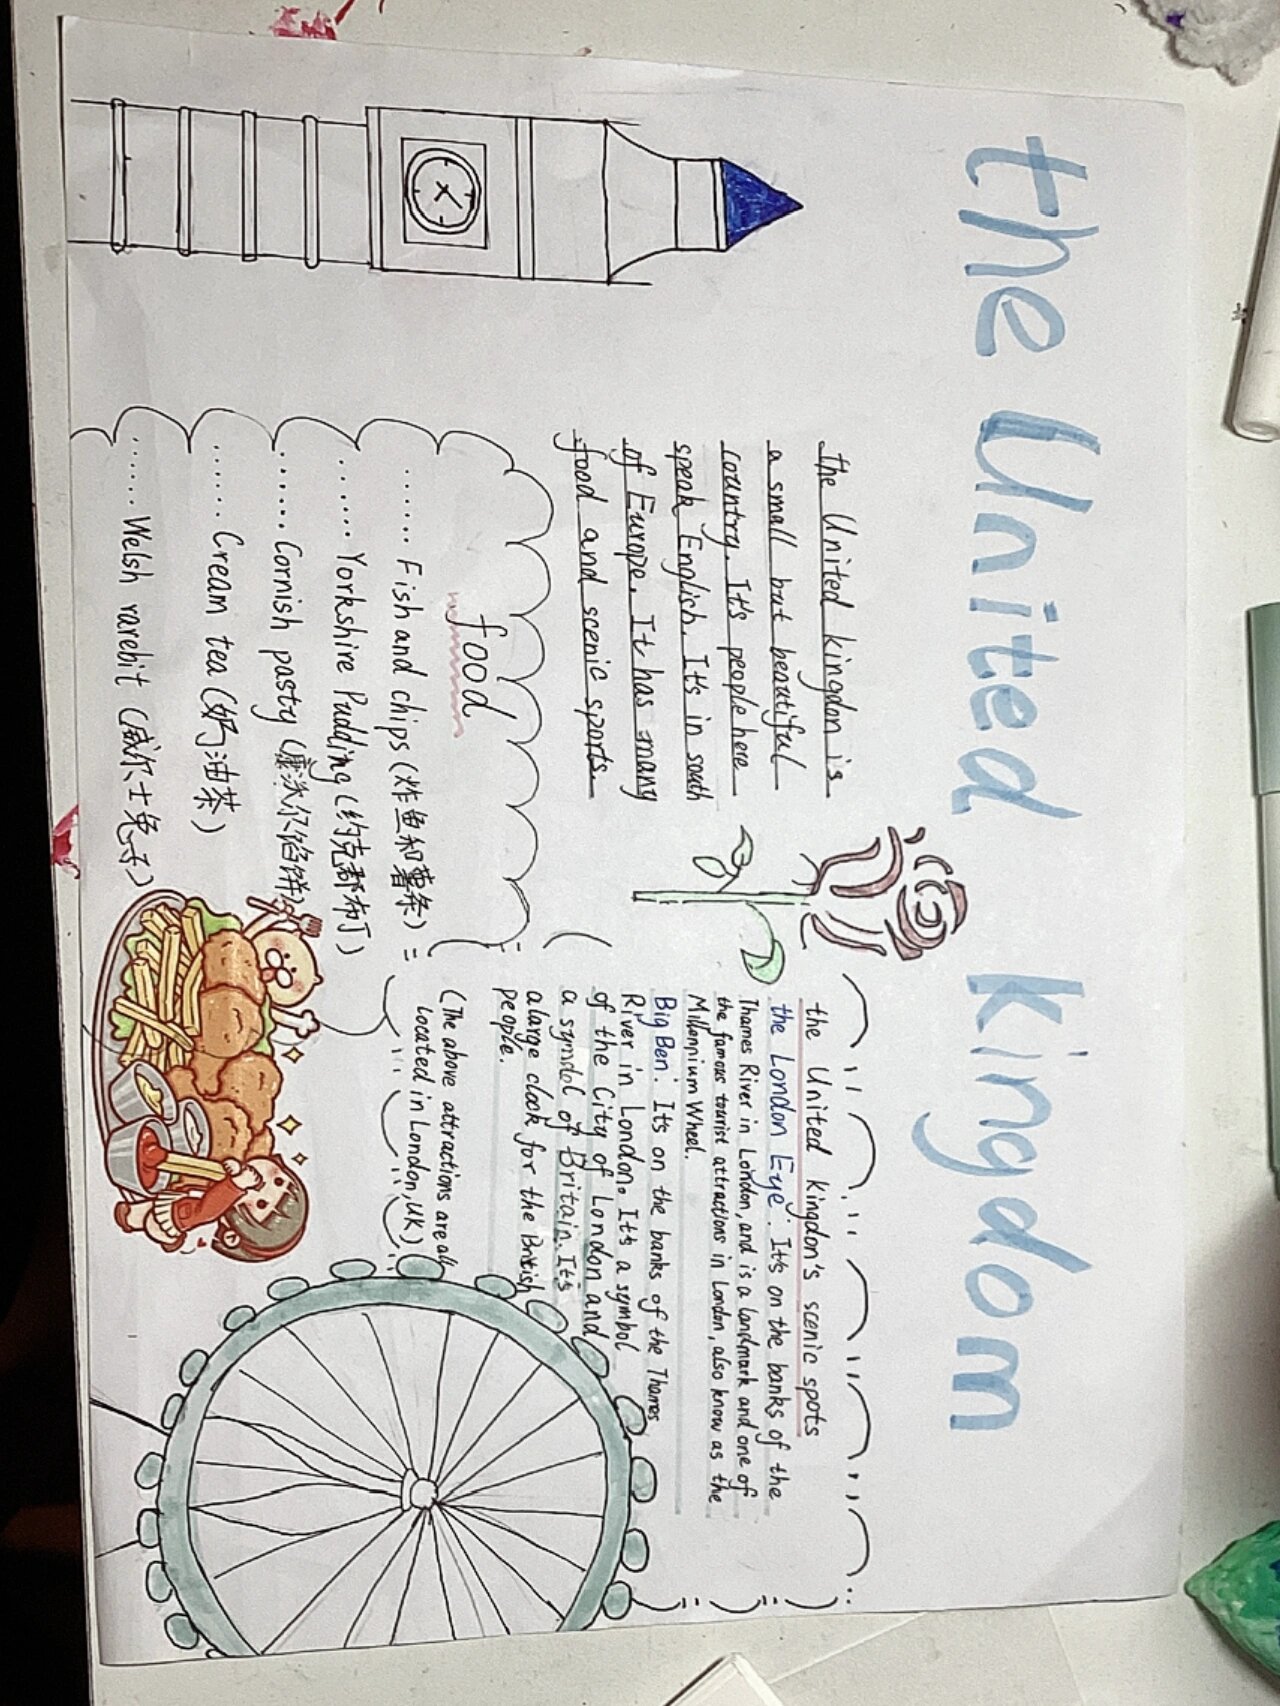 the United kingdom
the United kingdon is
a small but beautiful
country. It's people here
speak English. It's in south
of Europe. It has many
food and scenic sports
food
...... Fish and chips (炸鱼和薯条)
...... Yorkshire Pudding (约克郡布丁)
...... Cornish pasty (康沃尔馅饼)
...... Cream tea (奶油茶)
...... Welsh rarebit (威尔士兔子)
the United kingdon's scenic spots
the London Eye: It's on the banks of the
Thames River in London, and is a landmark and one of
the famous tourist attractions in London, also know as the
Millennium Wheel.
Big Ben: It's on the banks of the Thames
River in London. It's a symbol
of the City of London and
a symdol of Britain. It's
a large clock for the British
people.
(The above attractions are all
located in London, UK)